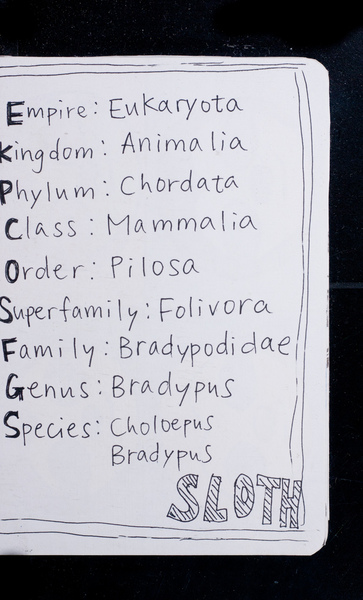 Empire: Eukaryota
Kingdom: Animalia
Phylum: Chordata
Class: Mammalia
Order: Pilosa
Superfamily: Folivora
Family: Bradypodidae
Genus: Bradypus
Species: Choloepus
Bradypus
SLOTH